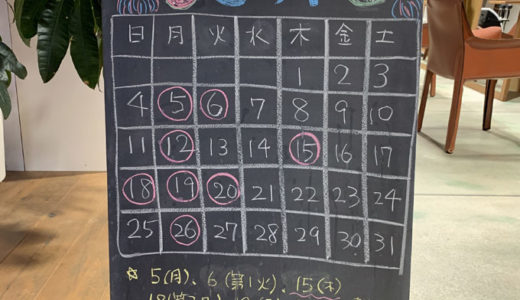 日 月 火 水 木 金 土
1 2 3
4 5 6 7 8 9 10
11 12 13 14 15 16 17
18 19 20 21 22 23 24
25 26 27 28 29 30 31
☆ 5(月)、6(第1火)、15(木)